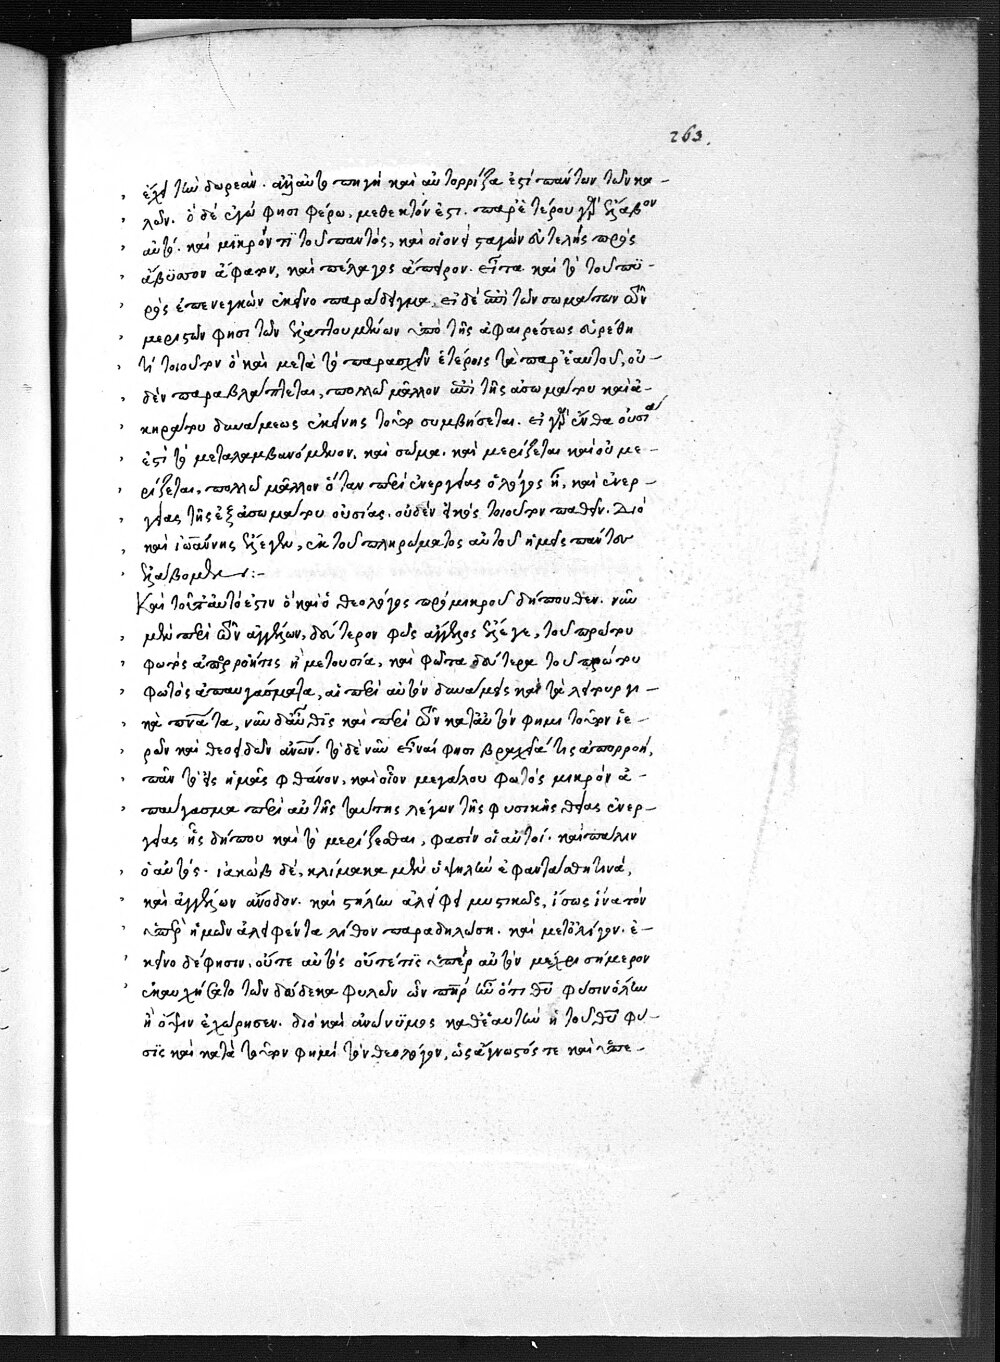 263.
ἔχει τὴν δωρεὰν. ἀλλ' αὐτὸ πηγὴ καὶ αὐτορρίζα ἐστὶ πάντων τῶν κα-
λῶν. ὁ δὲ ἐγώ φησι φέρω, μεθεκτόν ἐστι. παρ' ἑτέρου γὰρ ἔλαβον
αὐτό. καὶ μικρόν τι τοῦ παντός, καὶ οἱονεὶ σταγὼν εὐτελὴς πρὸς
ἄβυσσον ἄφατον, καὶ πέλαγος ἄπειρον. εἶτα καὶ τὸ τοῦ πυ-
ρὸς ἐπενεγκὼν ἐκεῖνο παράδειγμα, εἰ δὲ ἐπὶ τῶν σωμάτων ὧν
μερισμὸν φησι τῶν ὑπὸ τῆς ἀφαιρέσεως εὑρέθη
τι τοιοῦτον ὃ καὶ μετὰ τὸ παρασχεῖν ἑτέροις τὰ παρ' ἑαυτοῦ, οὐ-
δὲν παραβλάπτεται, πολλῷ μᾶλλον ἐπὶ τῆς ἀσωμάτου καὶ ἀ-
κηράτου δυνάμεως ἐκείνης τοῦτο συμβήσεται. εἰ γὰρ ἔνθα οὐσία
ἐστὶ τὸ μεταλαμβανόμενον, καὶ σῶμα. καὶ μερίζεται καὶ οὐ με-
ρίζεται, πολλῷ μᾶλλον ὅταν περὶ ἐνεργείας ὁ λόγος ᾖ, καὶ ἐνερ-
γείας τῆς ἐξ ἀσωμάτου οὐσίας. οὐδὲν εἰκὸς τοιοῦτον παθεῖν. Διὸ
καὶ ἰωάννης ἔλεγεν, ἐκ τοῦ πληρώματος αὐτοῦ ἡμεῖς πάντες
ἐλάβομεν:-
Καὶ τοῦτ' αὐτό ἐστιν ὃ καὶ ὁ θεολόγος πρὸ μικροῦ δήπουθεν. νῦν
μὲν περὶ τῶν ἀγγέλων, δεύτερον φῶς ἄγγελος ἔλεγε, τοῦ πρώτου
φωτὸς ἀπορροή τις ἢ μετουσία, καὶ φῶτα δεύτερα τοῦ πρώτου
φωτὸς ἀπαυγάσματα, αἱ περὶ αὐτὸν δυνάμεις καὶ τὰ λειτουργι-
κὰ πνατα, νῦν δ' αὖθις καὶ περὶ τῶν κατ' αὐτὸν φημι τοῦτον ἱε-
ρῶν καὶ θεοειδῶν ανων. τὸ δὲ νῦν εἶναί φησι βραχεῖά τις ἀπορροή,
πᾶν τὸ εἰς ἡμᾶς φθάνον, καὶ οἷον μεγάλου φωτὸς μικρὸν ἀ-
παύγασμα περὶ αὐτῆς ταύτης λέγων τῆς φυσικῆς θείας ἐνερ-
γείας ἧς δήπου καὶ τὸ μερίζεσθαι, φασὶν οἱ αὐτοί. καὶ πάλιν
ὁ αὐτός. ἰακὼβ δὲ, κλίμακα μὲν ὑψηλὴν ἐφαντάσθη τινά,
καὶ ἀγγέλων ἄνοδον. καὶ στήλην ἀλείφει μυστικῶς, ἴσως ἵνα τὸν
ὑπὲρ ἡμῶν ἀλειφέντα λίθον παραδηλώσῃ. καὶ μετ' ὀλίγον. ἐ-
κεῖνο δέ φησιν. οὔτε αὐτὸς οὔτέ τις ὑπὲρ αὐτὸν μέχρι σήμερον
ἐκαυχήσατο τῶν δώδεκα φυλῶν ὧν πηρ ἦν ὅτι θυ φύσιν ὅλην
ἢ ὄψιν ἐχώρησεν. διὸ καὶ ἀνωνύμος καθ' ἑαυτὴν ἡ τοῦ θυ φύ-
σις καὶ κατὰ τοῦτον φημὶ τὸν θεολόγον, ὡς ἄγνωστός τε καὶ ὑπε-